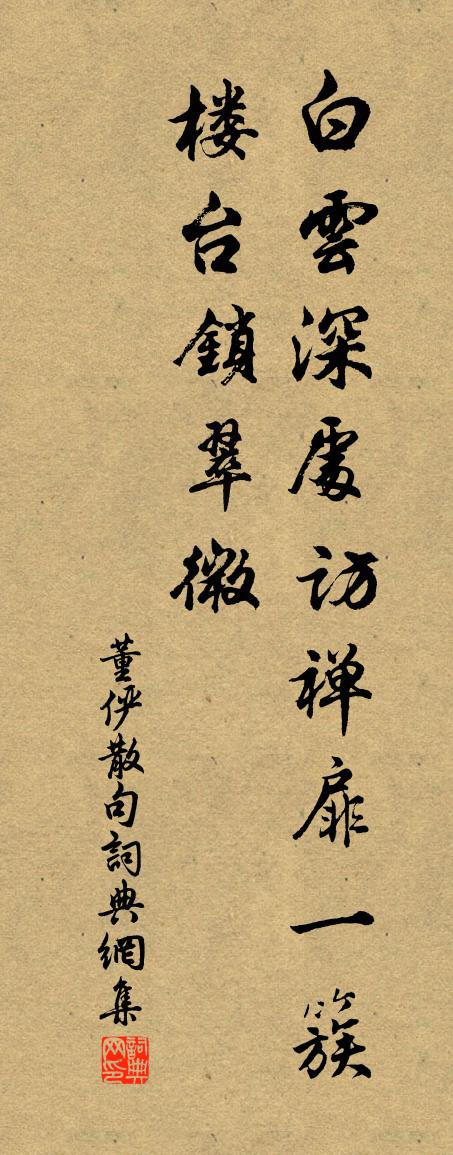 白雲深處访禅扉一簇
楼台鎖翠微
董俨散句詞典網集
詞典
网印